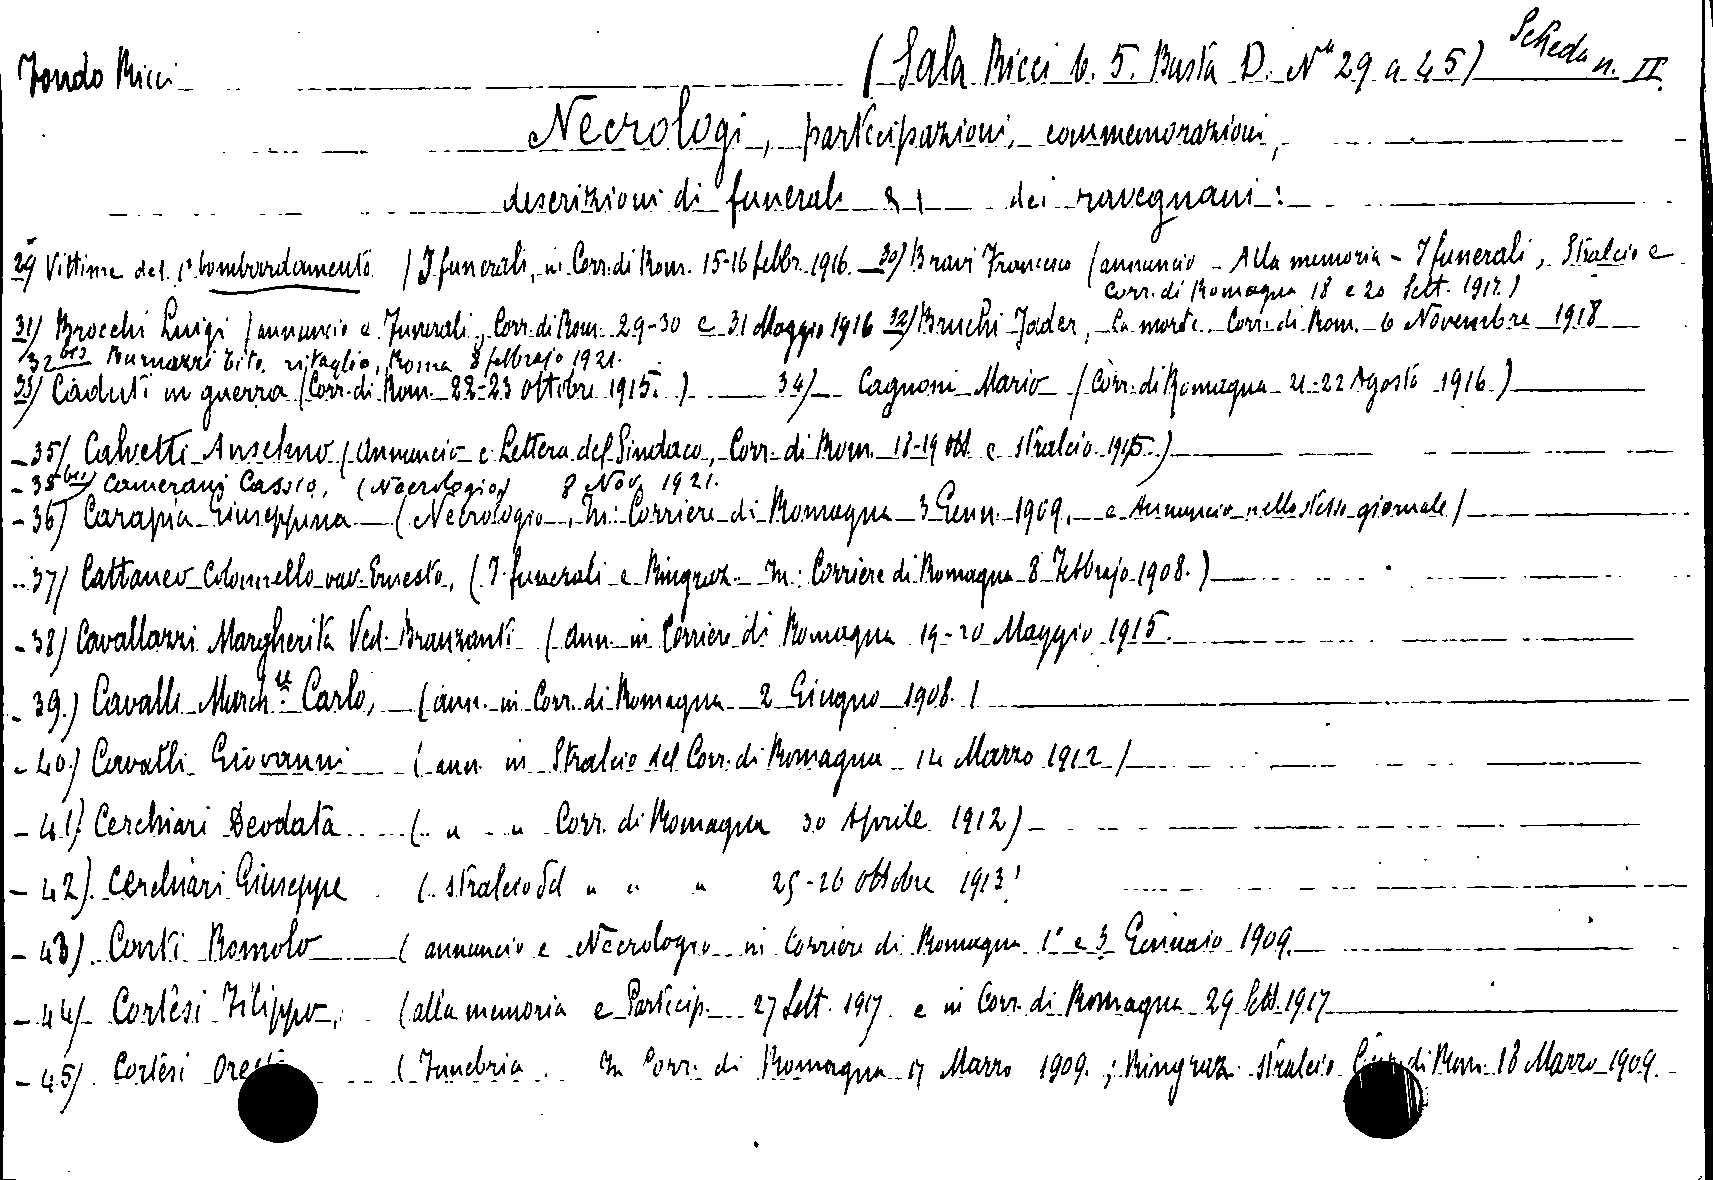 Fondo Ricci (Sala Ricci b. 5. Busta D. Nⁱ 29 a 45) Scheda n. II.
Necrologi, partecipazioni, commemorazioni,
descrizioni di funerali & dei ravegnani:
29 Vittime del 1º bombardamento (I funerali, in Corr. di Rom. 15-16 febbr. 1916. 30) Bravi Francesco (annuncio - Alla memoria - I funerali, Stralcio e
Corr. di Romagna 18 e 20 Sett. 1917.)
31) Brocchi Luigi (annuncio e Funerali, Corr. di Rom. 29-30 e 31 Maggio 1916 32) Bruchi Jader, La morte. Corr. di Rom. 6 Novembre 1918
32 bis Burnazzi Tito, ritaglio, Roma 8 febbrajo 1921.
33) Caduti in guerra (Corr. di Rom. 22-23 Ottobre 1915.) 34) Cagnoni Mario (Corr. di Romagna 21-22 Agosto 1916.)
- 35) Calvetti Anselmo (Annuncio e Lettera del Sindaco, Corr. di Rom. 18-19 Ott. e stralcio 1915.)
- 35 bis) Camerani Cassio, (Necrologio) 8 Nov. 1921.
- 36) Carapia Giuseppina (Necrologio, In: Corriere di Romagna 3 Genn. 1909, e Annuncio nello stesso giornale)
- 37) Cattaneo Colonnello cav. Ernesto, (I funerali e Ringraz. In: Corriere di Romagna 8 Febbrajo 1908.)
- 38) Cavallazzi Margherita Ved. Branzanti (ann. in Corriere di Romagna 19-20 Maggio 1915.
- 39.) Cavalli March.se Carlo, (ann. in Corr. di Romagna 2 Giugno 1908.)
- 40) Cavalli Giovanni (ann. in Stralcio del Corr. di Romagna 14 Marzo 1912)
- 41) Cerchiari Deodata (" " Corr. di Romagna 30 Aprile 1912)
- 42) Cerchiari Giuseppe (stralcio del " " " 25-26 Ottobre 1913)
- 43) Conti Romolo (annuncio e Necrologio in Corriere di Romagna 1º e 3 Gennaio 1909.
- 44) Cortesi Filippo, (alla memoria e Partecip. 27 Sett. 1917 e in Corr. di Romagna 29 Sett. 1917
- 45) Cortesi Oreste (Funebria. In Corr. di Romagna 17 Marzo 1909.; Ringraz. stralcio Corr. di Rom. 18 Marzo 1909.